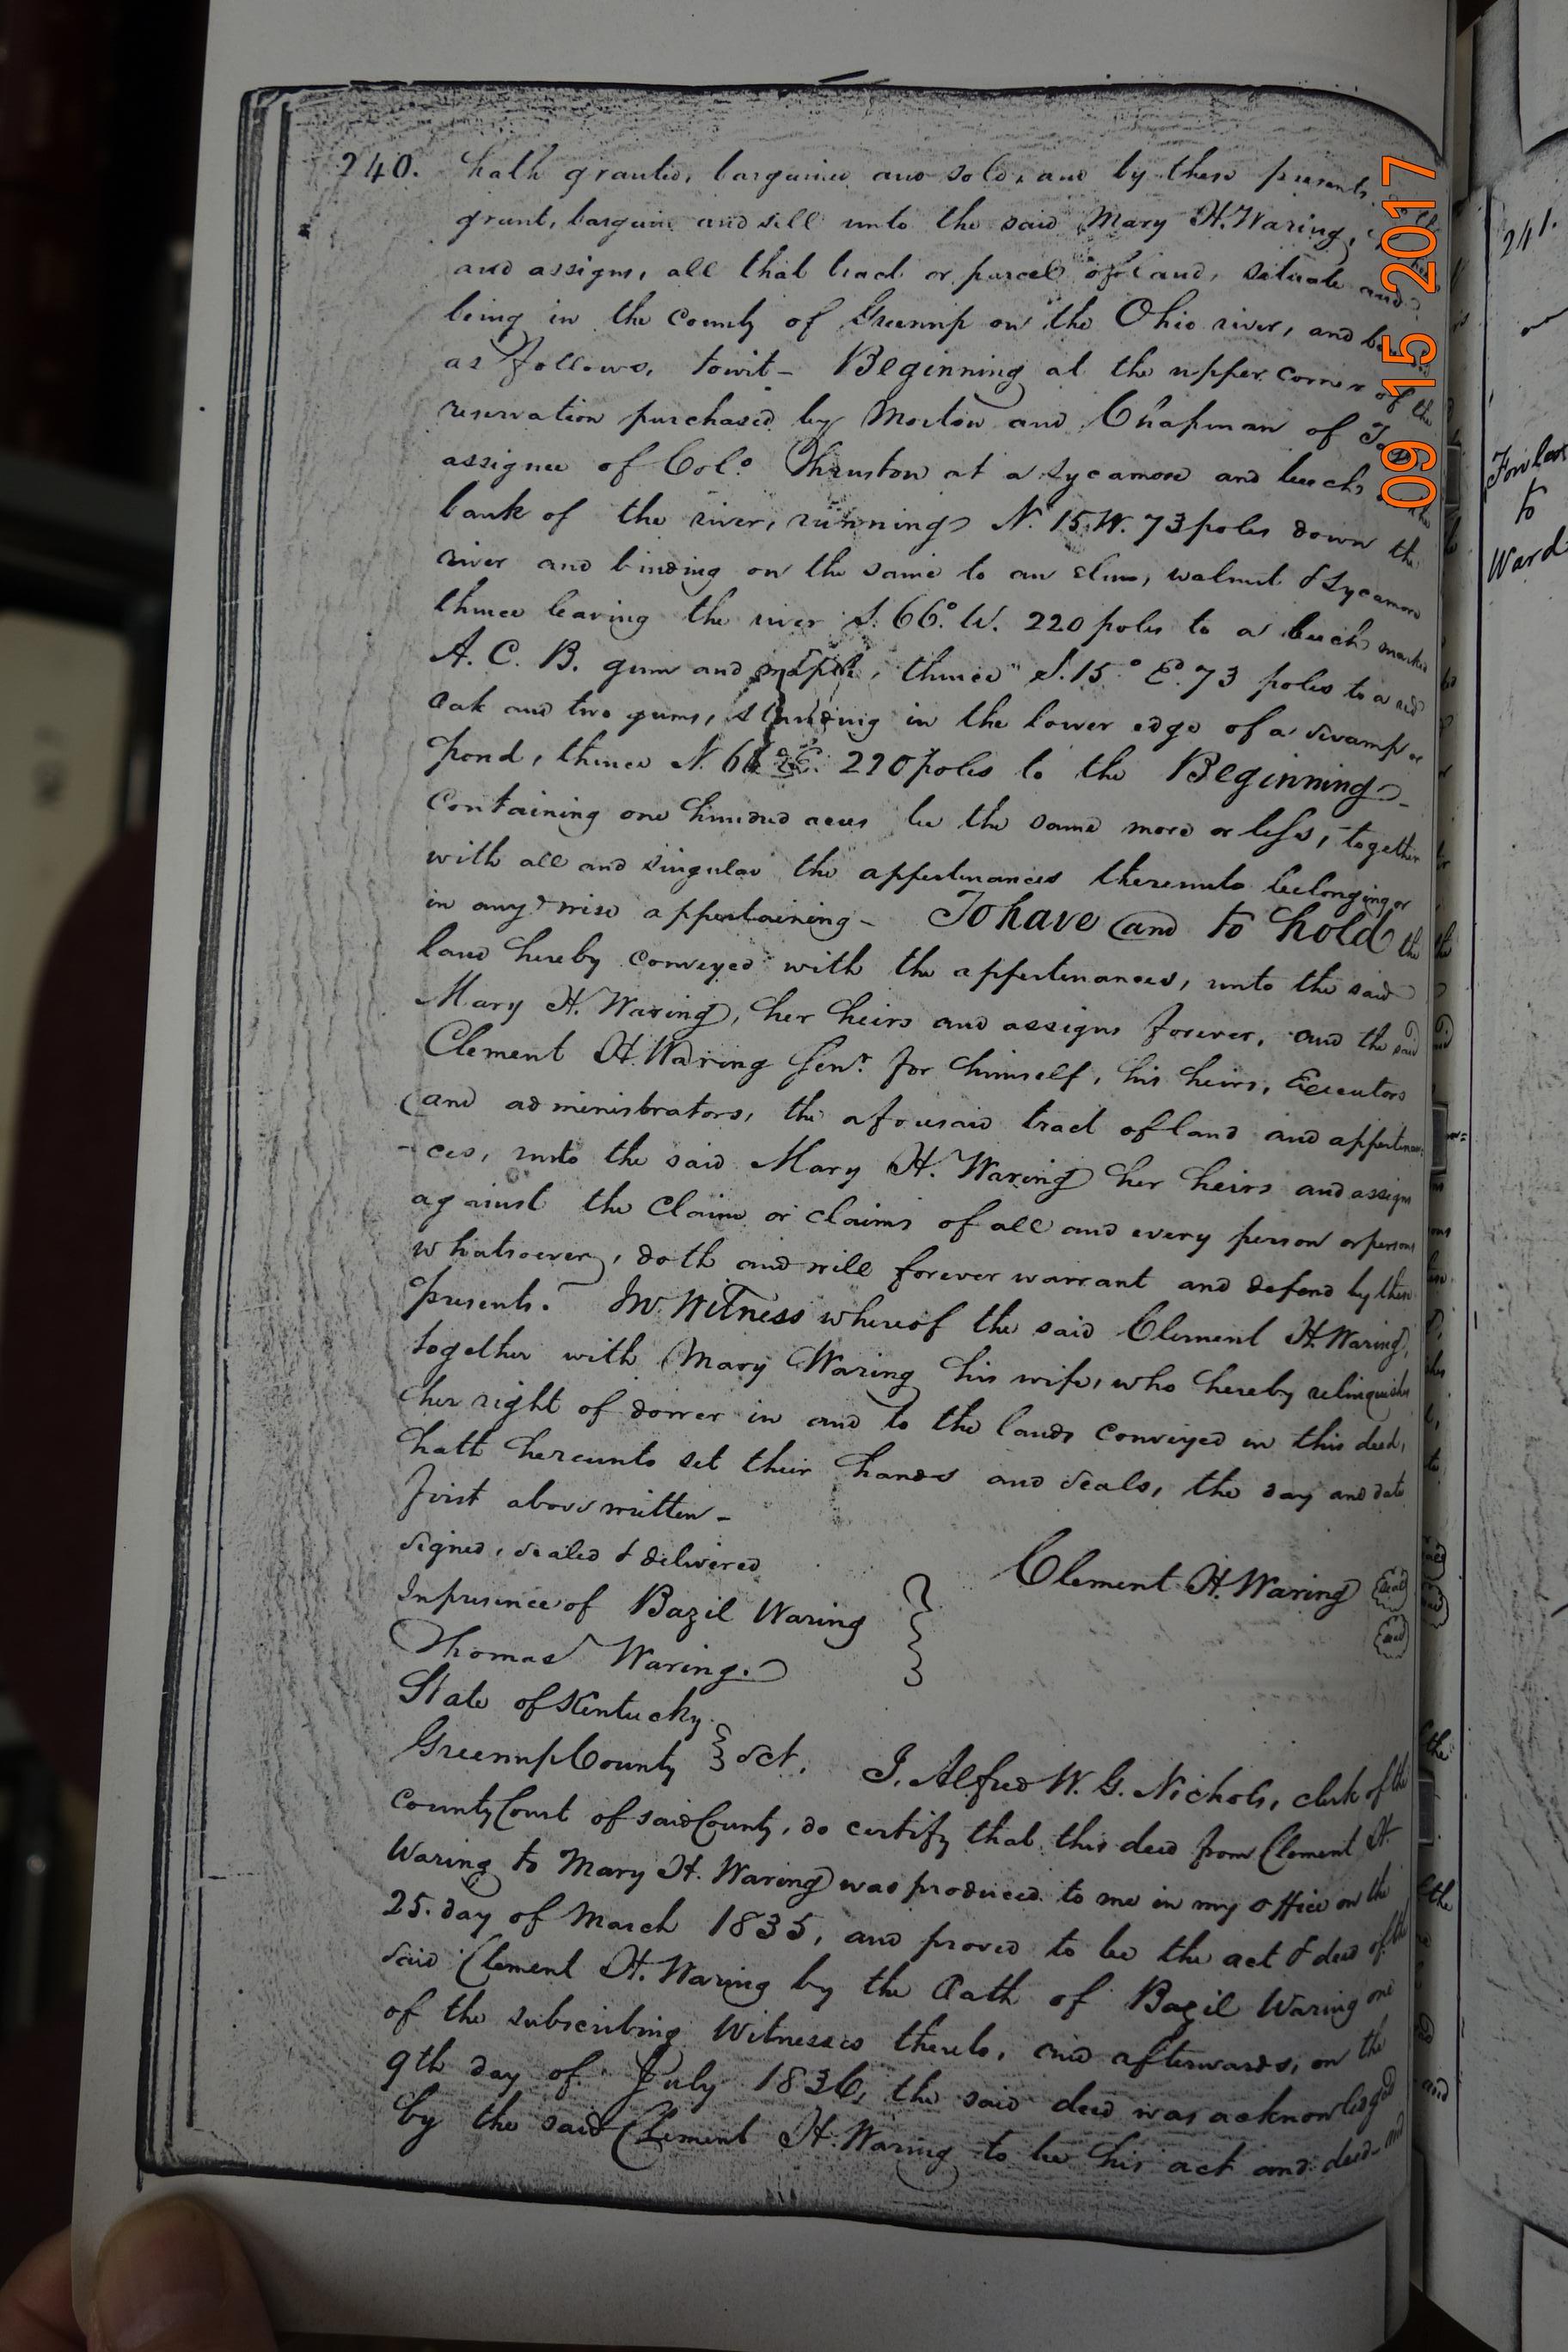 240. hath granted, bargained and sold, and by these presents
grant, bargain and sell unto the said Mary H. Waring,
and assigns, all that tract or parcel of land, situate and
being in the County of Greenup on the Ohio river, and
as follows, towit - Beginning at the upper corner of the
reservation purchased by Morton and Chapman of
assignee of Col.º Thruston at a sycamore and beech
bank of the river, running N. 15. W. 73 poles down the
river and binding on the same to an elm, walnut & Sycamore
thence leaving the river S. 66.º W. 220 poles to a beech marked
A. C. B. gum and maple, thence S. 15º E. 73 poles to a red
oak and two gums, standing in the lower edge of a swamp or
pond, thence N. 66 E. 220 poles to the Beginning -
Containing one hundred acres be the same more or less, together
with all and singular the appertenances thereunto belonging or
in any wise appertaining - To have and to hold the
land hereby conveyed with the appertenances, unto the said
Mary H. Waring, her heirs and assigns forever, and the said
Clement H. Waring Senr. for himself, his heirs, Executors
and administrators, the aforesaid tract of land and appertenan
-ces, unto the said Mary H. Waring her heirs and assigns
against the Claim or claims of all and every person or persons
whatsoever, doth and will forever warrant and defend by these
presents. In Witness whereof the said Clement H. Waring,
together with Mary Waring his wife, who hereby relinquishes
her right of dower in and to the lands conveyed in this deed,
hath hereunto set their hands and seals, the day and date
first above written -
Signed, sealed & delivered
In presence of Bazil Waring
Clement H. Waring seal
seal
Thomas Waring.
State of Kentucky
Greenup County sct. I, Alfred W. G. Nichols, clerk of the
County Court of said County, do certify that this deed from Clement H.
Waring to Mary H. Waring was produced to me in my office on the
25. day of March 1835, and proved to be the act & deed of the
said Clement H. Waring by the Oath of Bazil Waring one
of the subscribing Witnesses thereto, and afterwards, on the
9th day of July 1836, the said deed was acknowledged
by the said Clement H. Waring to be his act and deed - and
241.
Fowler
to
Ward
09 15 2017